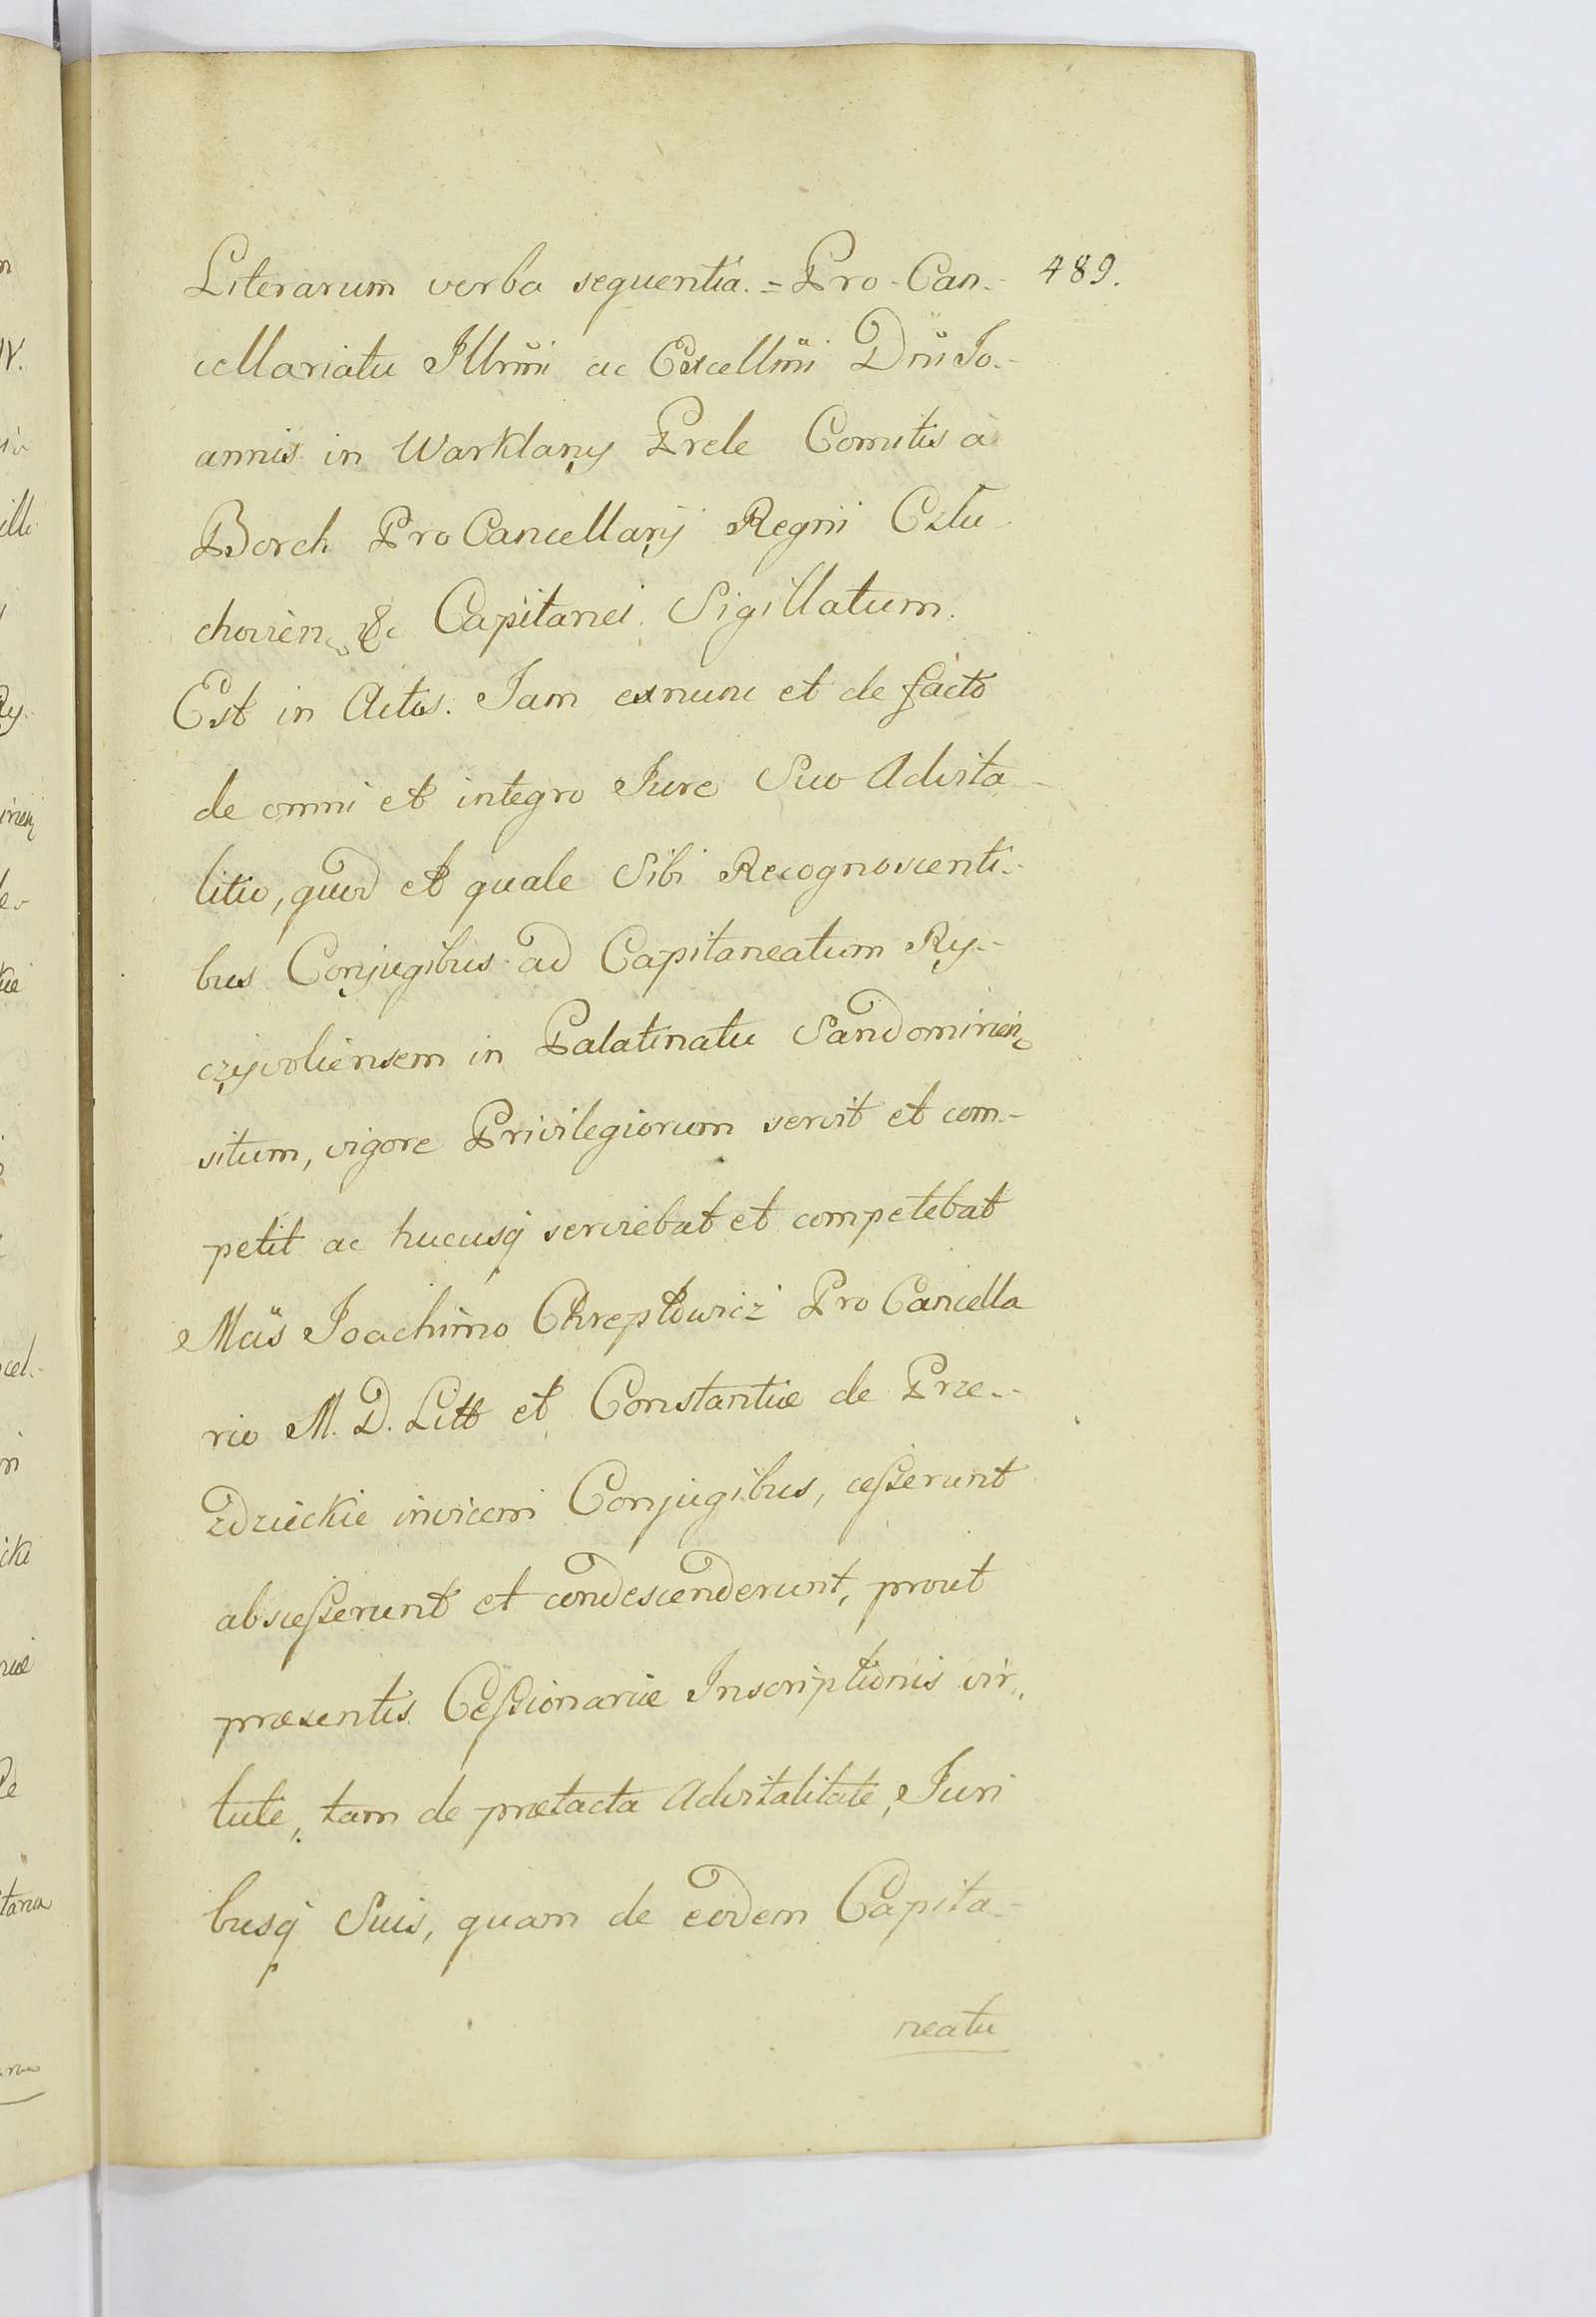 Literarum verba sequentia. = Pro-Can- 489.
cellariatu Illrmi ac Excellmi Dni Jo-
annis in Warklany Prele Comitis à
Borch Pro Cancellarij Regni Cztu-
chovien &c Capitanei. Sigillatum.
Est in Actis. Jam exnunc et de facto
de omni et integro Jure Suo Advita-
litio, quod et quale Sibi Recognoscenti-
bus Conjugibus ad Capitaneatum Ry-
czyvoliensem in Palatinatu Sandomirien
situm, vigore Privilegiorum servit et com-
petit ac hucusq serviebat et competebat
Mcis Joachimo Chreptowicz Pro Cancella
rio M. D. Litt et Constantiæ de Prze-
zdzieckie invicem Conjugibus, cesserunt
abscesserunt et condescenderunt, prout
præsentis Cessionariæ Inscriptionis vir-
tute, tam de prætacta Advitalitate, Juri
busq Suis, quam de eodem Capita-
neatu